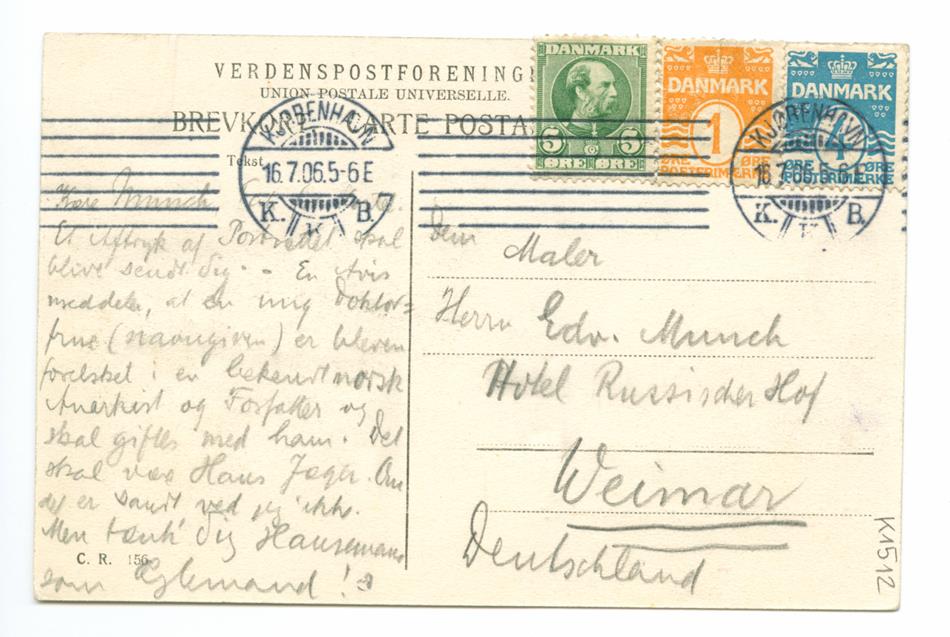 VERDENSPOSTFORENING
UNION POSTALE UNIVERSELLE.
BREVKORT CARTE POSTA
Tekst
DANMARK
5 5
ØRE ØRE
DANMARK
1
ØRE ØRE
POSTFRIMÆRKE
DANMARK
4
ØRE ØRE
POSTFRIMÆRKE
KJØBENHAVN
16.7.06.5-6 E
K. K B.
KJØBENHAVN
16.7.06.5-6 E
K. K B.
Kære Munch
Et Aftryk af Portrædet skal
blive sendt dig. - En Avis
meddeler, at en ung Doktor=
frue (navngiven) er bleven
forelsket i en bekendt norsk
Anarkist og Forfatter og
skal giftes med ham. Det
skal være Hans Jæger. Om
det er sandt ved jeg ikke.
Men tænk dig Hausemann
som Eglemand!
C. R. 156
Dem
Maler
Herrn Edv. Munch
Hotel Russischer Hof
Weimar
Deutschland
K1512